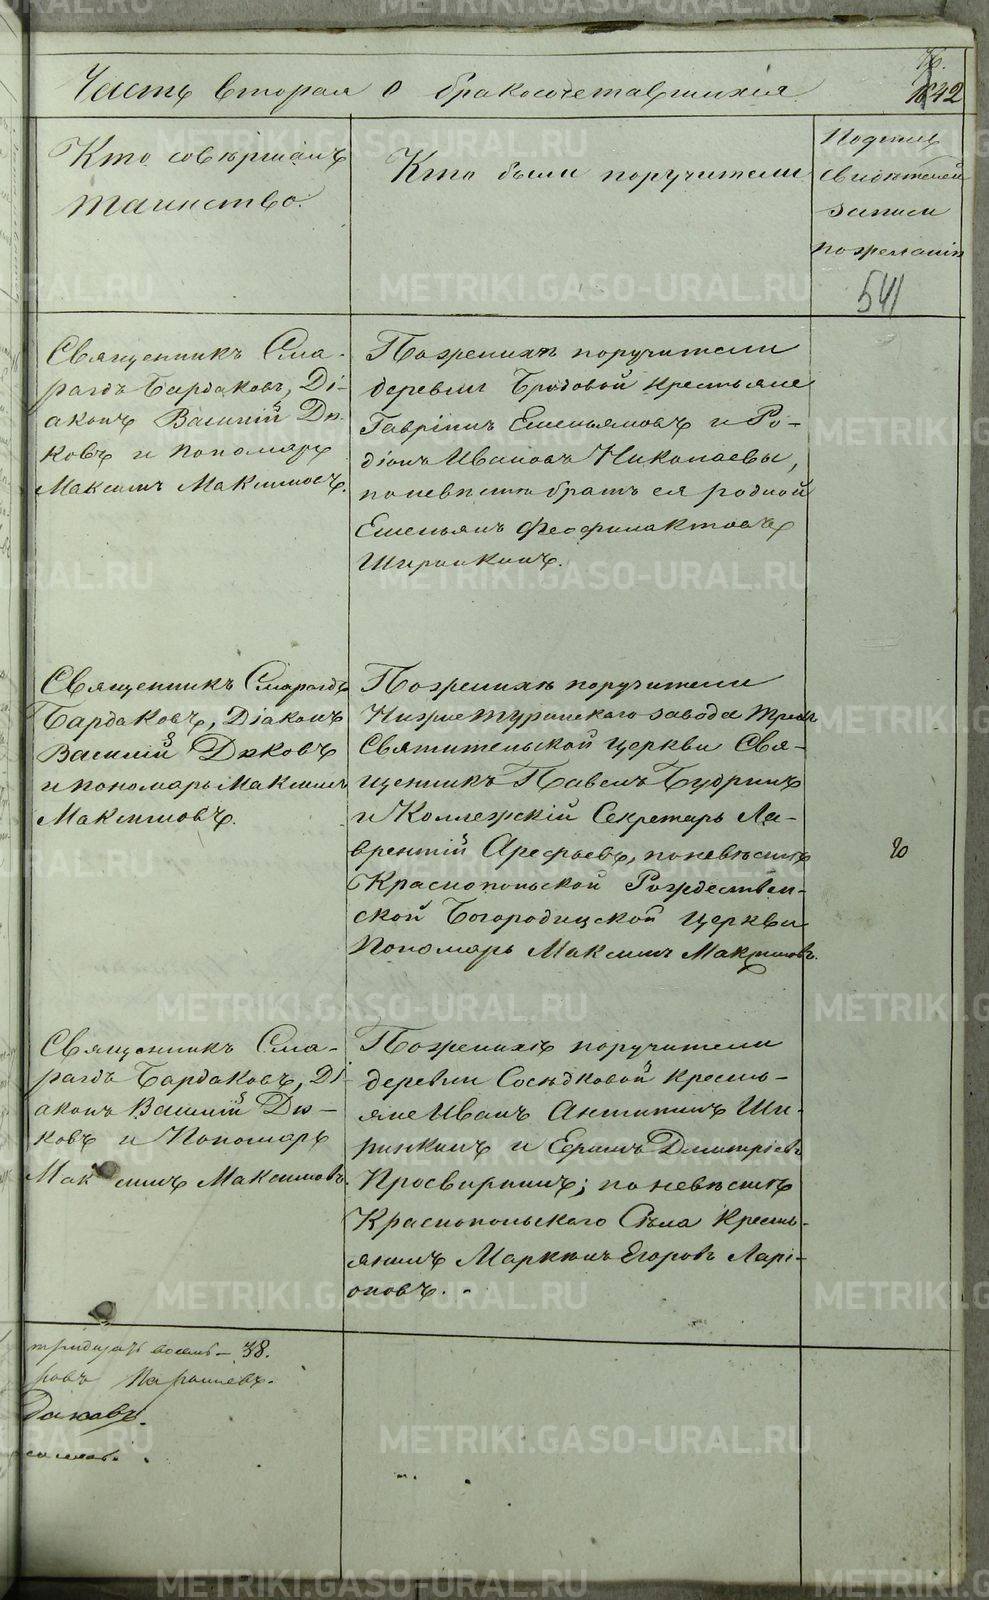 Часть вторая о бракосочетавшихся
1842
Кто совершалъ
таинство.
Кто были поручители
Подпись
свидѣтелей
записи
по желанію
541
Священникъ Сма-
рагдъ Бардаковъ, Ді-
аконъ Василій Дя-
ковъ и пономарь
Максимъ Максимовъ.
По женихѣ поручители
деревни Бродовой крестьяне
Гавріилъ Емельяновъ и Ро-
діонъ Ивановъ Николаевы,
по невѣстѣ братъ ея родной
Емельянъ Феофилактовъ
Ширинкинъ.
Священникъ Смарагдъ
Бардаковъ, Діаконъ
Василій Дяковъ
и пономарь Максимъ
Максимовъ.
По женихѣ поручители
Нижнетуринскаго завода Трех
Святительской церкви Свя-
щенникъ Павелъ Будринъ
и Коллежскій Секретарь Ла-
врентій Арефьевъ, по невѣстѣ
Краснопольской Рождествен-
ской Богородицкой церкви
Пономарь Максимъ Максимовъ.
Священникъ Сма-
рагдъ Бардаковъ, Ді-
аконъ Василій Дя-
ковъ и Пономарь
Максимъ Максимовъ.
По женихѣ поручители
деревни Сосѣдковой кресть-
яне Иванъ Антипинъ Ши-
ринкинъ и Ефимъ Дмитріевъ
Просвирнинъ; по невѣстѣ
Краснопольскаго Села кресть-
янинъ Маркелъ Егоровъ Ларі-
оновъ.
тридцать восемь – 38.
даковъ.
METRIKI.GASO-URAL.RU